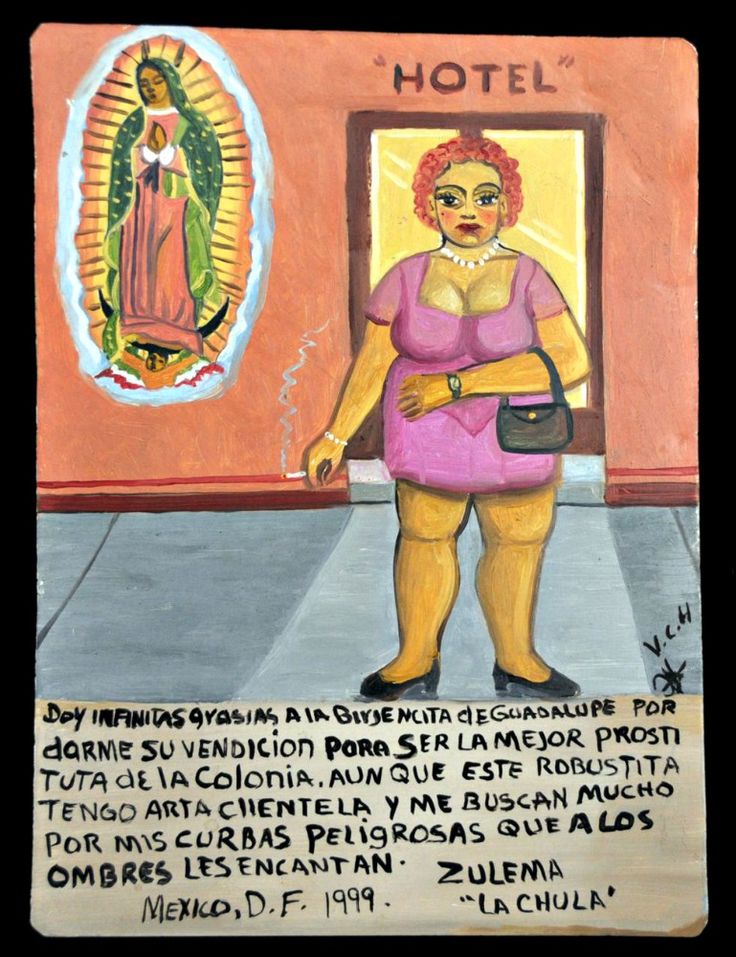 "HOTEL"
V.C.H
DOY INFINITAS grasias A LA BIRJENCITA de GUADALUPE POR
dARME SU VENDICION PARA SER LA MEJOR PROSTI
TUTA de LA COLONIA. AUN QUE ESTE ROBUSTITA
TENGO ARTA CLIENTELA Y ME BUSCAN MUCHO
POR MIS CURBAS PELIGROSAS QUE A LOS
OMBRES LES ENCANTAN. ZULEMA
MEXICO, D.F. 1999. "LA CHULA"